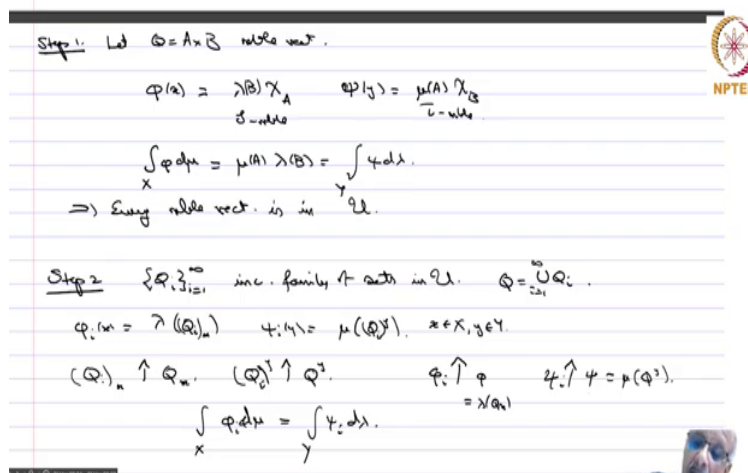 Step 1. Let Q = A×B mble rect.
φ(x) = λ(B) χ_A ψ(y) = μ(A) χ_B
S-mble τ-mble
∫_X φ dμ = μ(A) λ(B) = ∫_Y ψ dλ.
⇒ Every mble rect. is in 𝒰.
Step 2 {Q_i}_{i=1}^∞ inc. family of sets in 𝒰. Q = ∪_{i=1}^∞ Q_i.
φ_i(x) = λ((Q_i)_x) ψ_i(y) = μ((Q_i)^y). x∈X, y∈Y.
(Q_i)_x ↑ Q_x. (Q_i)^y ↑ Q^y. φ_i ↑ φ ψ_i ↑ ψ = μ(Q^y).
= λ(Q_x)
∫_X φ_i dμ = ∫_Y ψ_i dλ.
NPTEL